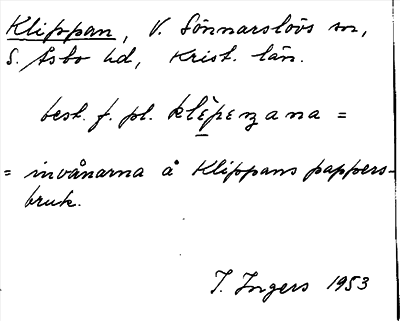 Klippan, V. Sönnarslövs sn,
S. Åsbo hd, Krist. län.
best. f. pl. klèpenzana =
= invånarna å Klippans pappers-
bruk.
I. Ingers 1953